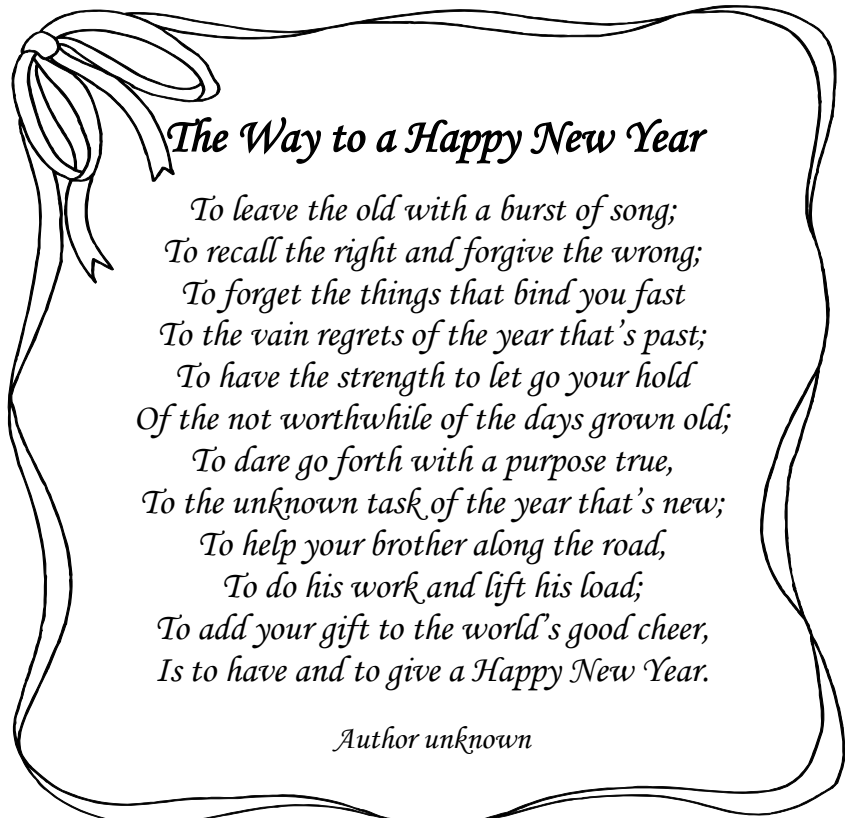 The Way to a Happy New Year
To leave the old with a burst of song;
To recall the right and forgive the wrong;
To forget the things that bind you fast
To the vain regrets of the year that’s past;
To have the strength to let go your hold
Of the not worthwhile of the days grown old;
To dare go forth with a purpose true,
To the unknown task of the year that’s new;
To help your brother along the road,
To do his work and lift his load;
To add your gift to the world’s good cheer,
Is to have and to give a Happy New Year.
Author unknown